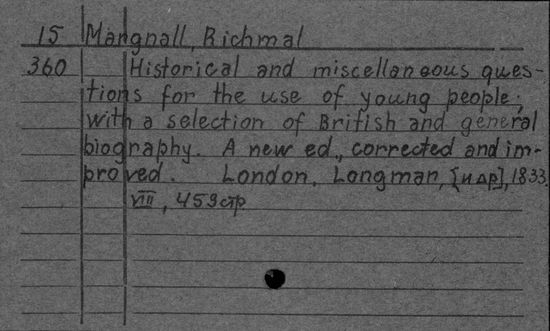 15 Mangnall, Richmal
360 Historical and miscellaneous ques-
tions for the use of young people;
with a selection of British and general
biography. A new ed., corrected and im-
proved. London, Longman, [и др], 1833.
VIII, 459 стр